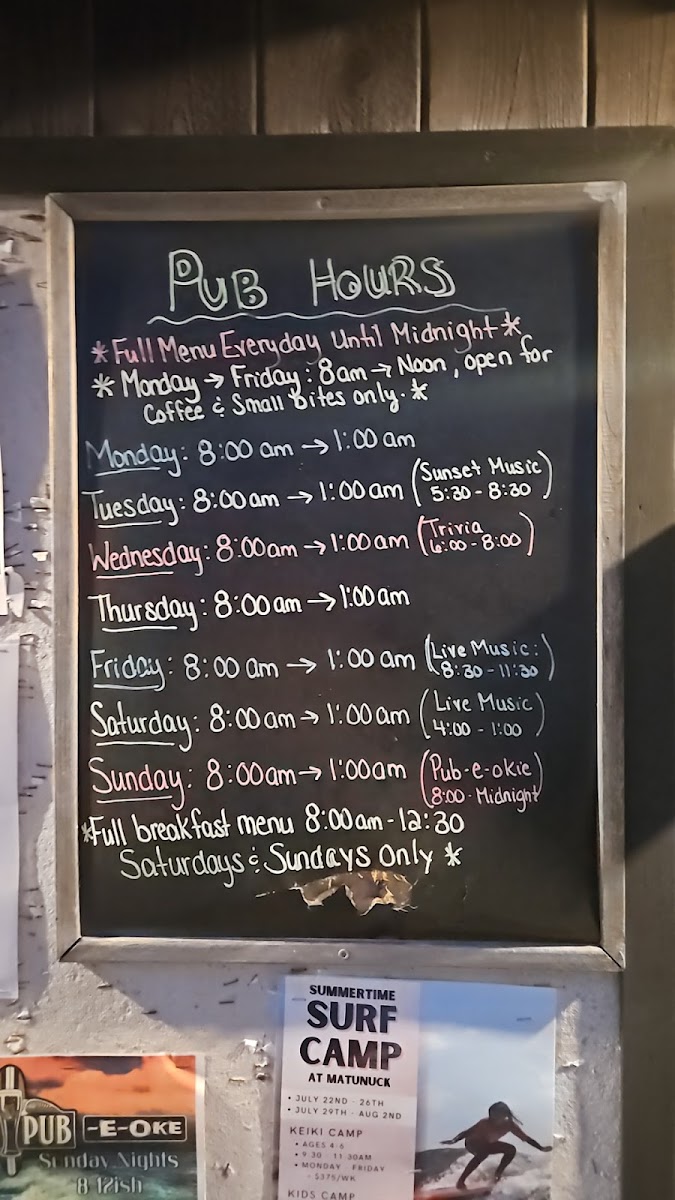 PUB HOURS
*Full Menu Everyday Until Midnight*
* Monday → Friday: 8am → Noon, open for
Coffee & Small Bites only. *
Monday: 8:00 am → 1:00 am
Tuesday: 8:00 am → 1:00 am (Sunset Music
5:30 - 8:30)
Wednesday: 8:00am → 1:00am (Trivia
6:00 - 8:00)
Thursday: 8:00 am → 1:00 am
Friday: 8:00 am → 1:00 am (Live Music:
8:30 - 11:30)
Saturday: 8:00am → 1:00am (Live Music
4:00 - 1:00)
Sunday: 8:00am → 1:00am (Pub-e-okie
8:00 - Midnight)
*Full breakfast menu 8:00am - 12:30
Saturdays & Sundays Only *
SUMMERTIME
SURF
CAMP
AT MATUNUCK
• JULY 22ND - 26TH
• JULY 29TH - AUG 2ND
KEIKI CAMP
• AGES 4-6
• 9:30 - 11:30AM
• MONDAY - FRIDAY
- $375/WK
KIDS CAMP
PUB -E-OKE
Sunday Nights
8-12ish